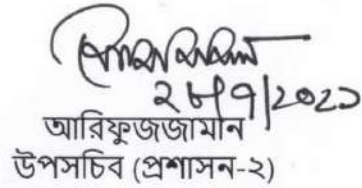 ২৮/৭/২০২১
আরিফুজজামান
উপসচিব (প্রশাসন-২)